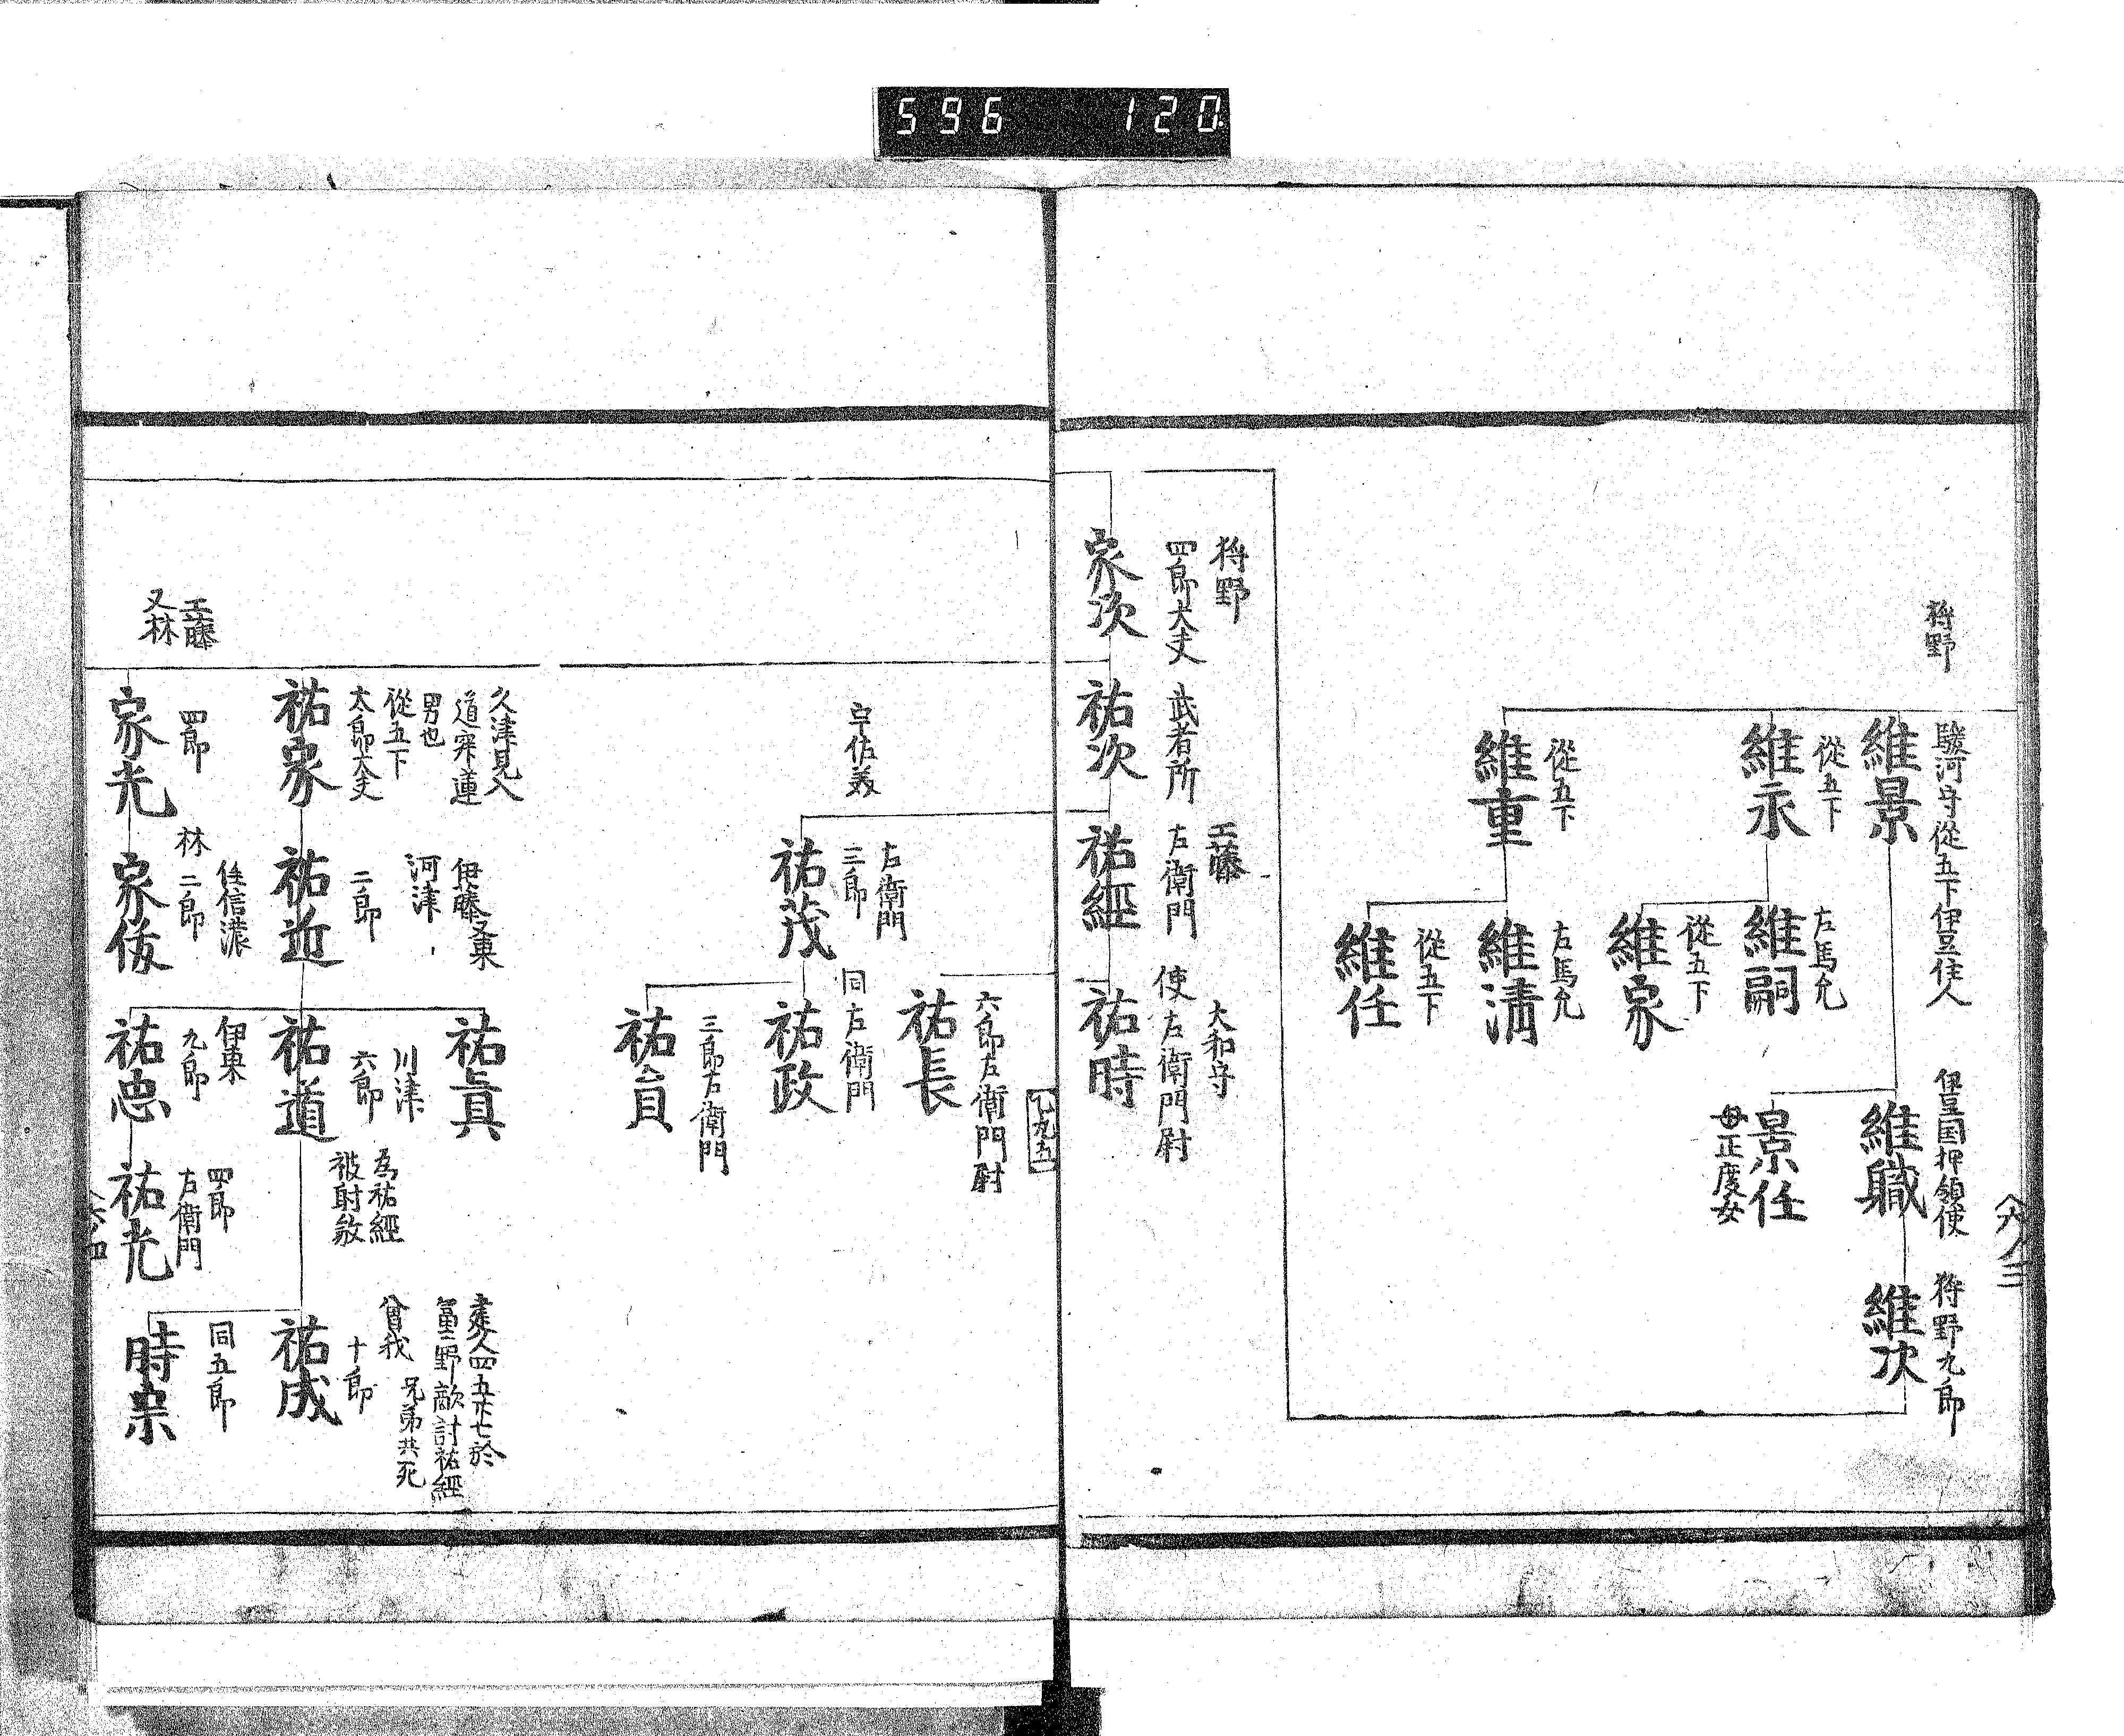 596 120
狩野
維景
駿河守從五下伊豆住人
維職
伊豆国押領使
維次
狩野九郎
景任
母正度女
維永
從五下
維嗣
左馬允
維家
從五下
維重
從五下
維清
右馬允
維任
從五下
狩野
四郎大夫
家次
武者所
祐次
工藤
左衛門
祐經
大和守
使左衛門尉
祐時
六郎左衛門尉
祐長
宇佐美
右衛門
三郎
祐茂
同左衛門
祐政
三郎右衛門
祐員
久津見入
道寂蓮
男也
從五下
太郎大夫
祐家
伊藤又東
河津
二郎
祐近
祐眞
川津
六郎
祐道
為祐經
被射敘
建久四五廿七於
冨野敵討祐經
曾我
兄弟共死
十郎
祐成
同五郎
時宗
伊東
九郎
祐忠
四郎
右衛門
祐光
工藤
又林
四郎
家光
住信濃
林二郎
家俊